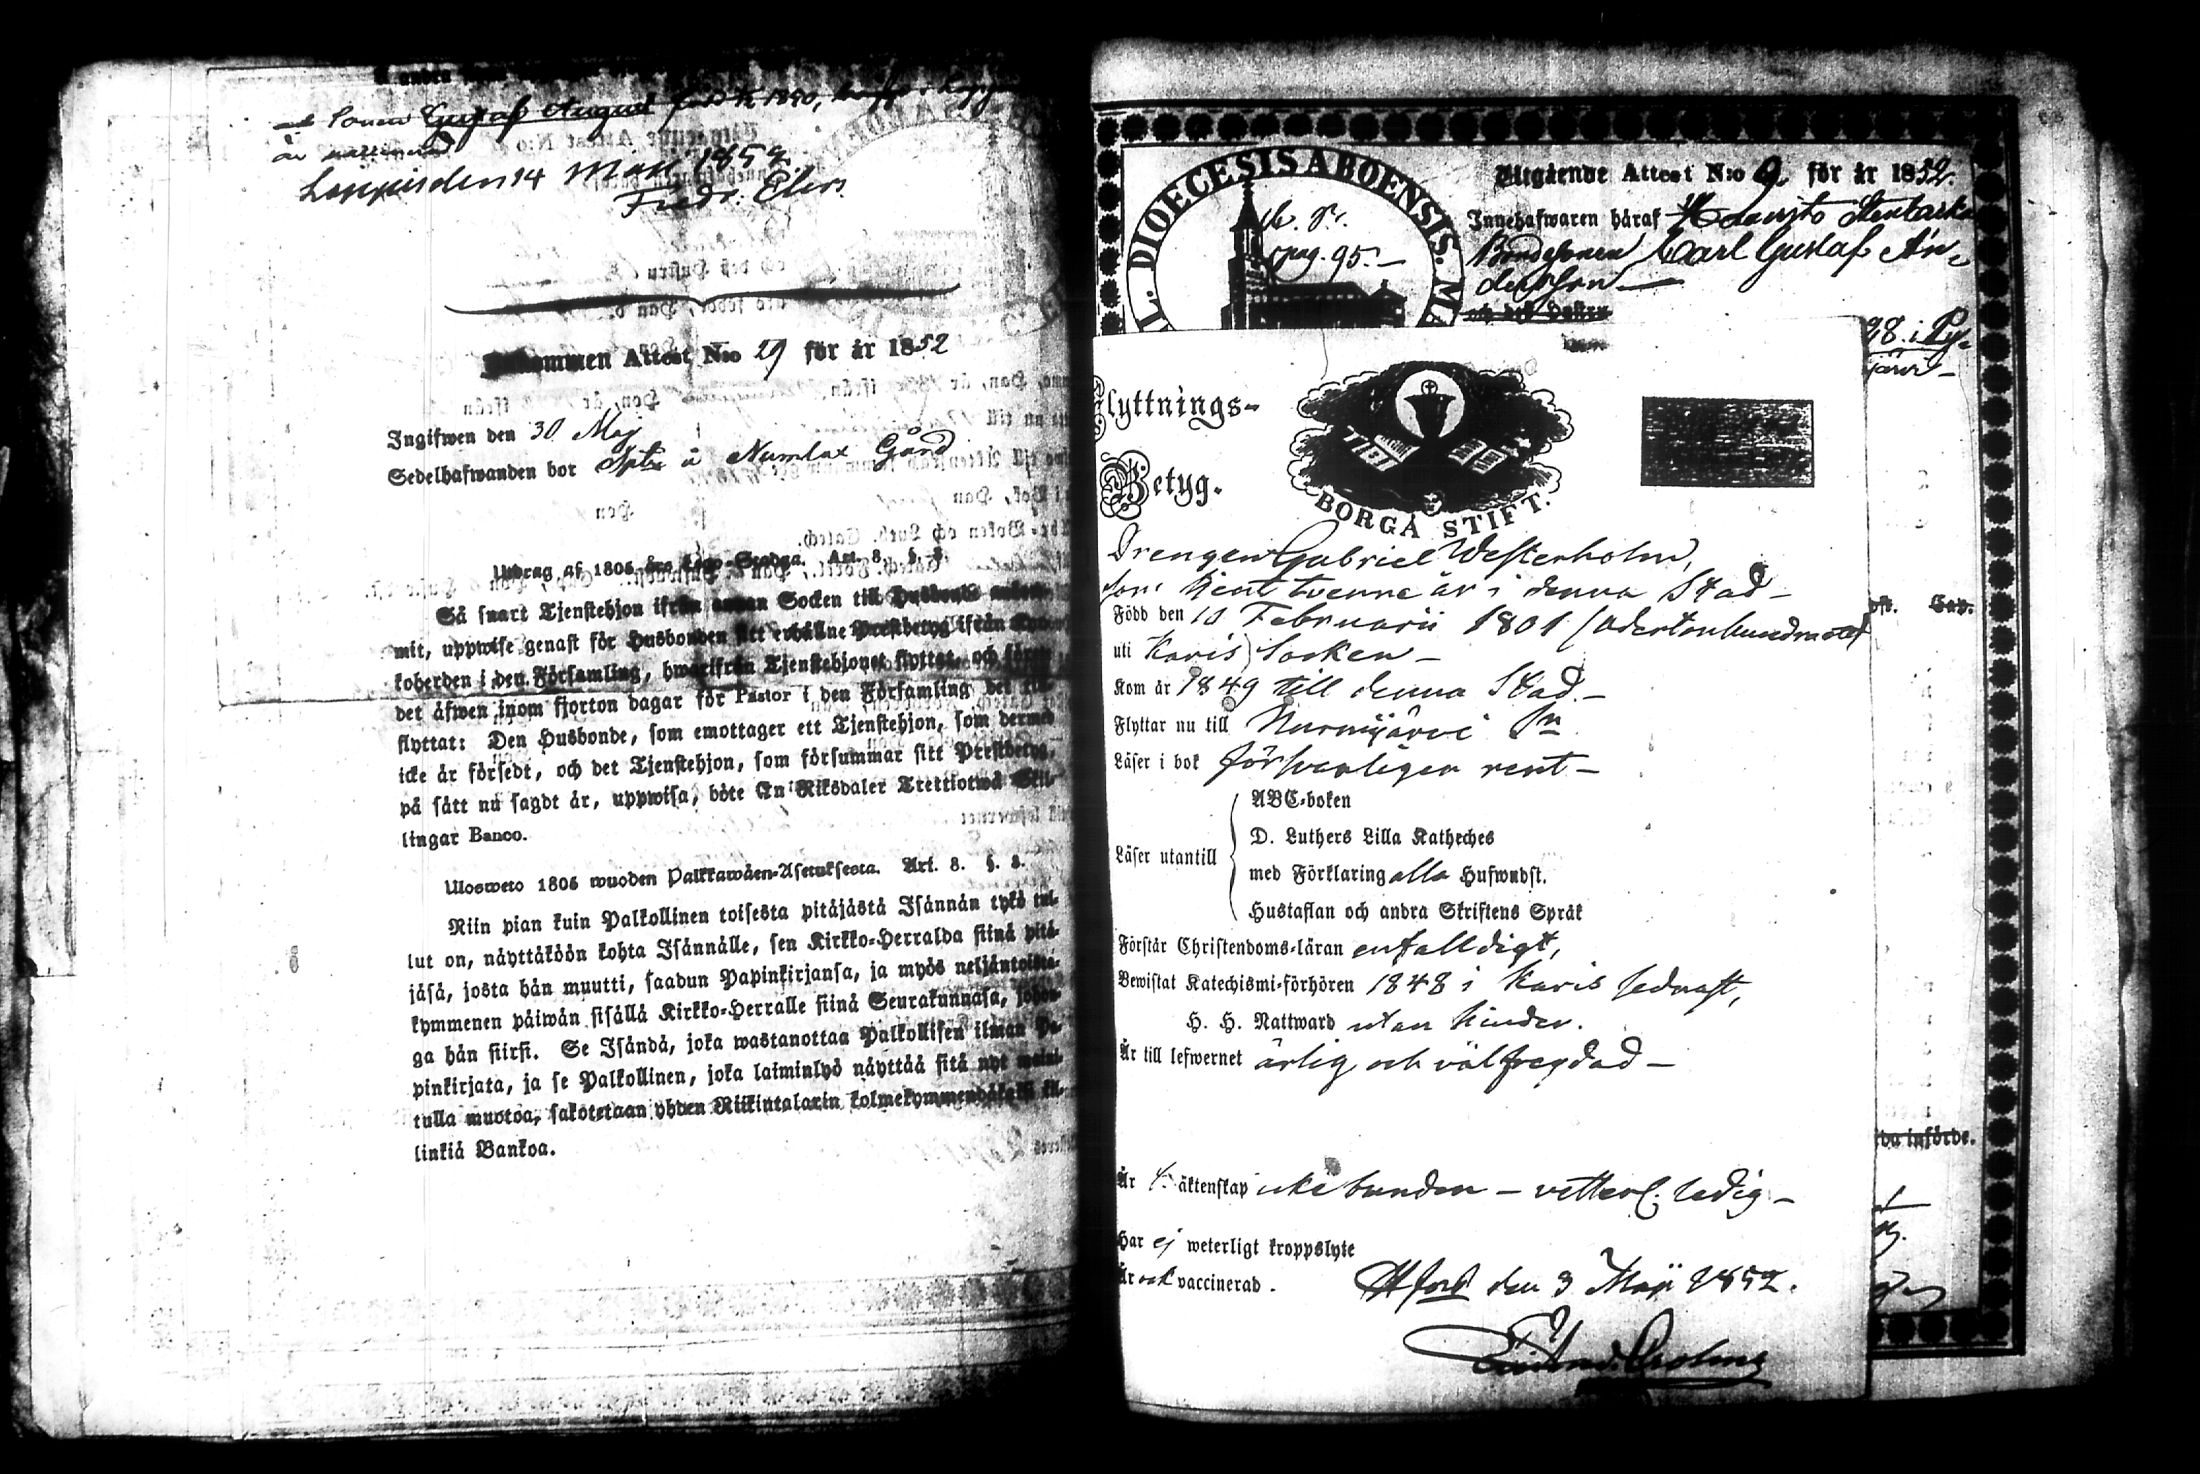 Sonen Gustaf August född 1840,
Loppis den 14 Maji 1852
Fredr. Elers.
Inkommen Attest N:o 29 för år 1852
Ingifwen den 30 Maj
Sedelhafwanden bor å Numlax Gård
Utdrag af 1805 års Lego-Stadga. Art. 8. §. 8.
Så snart Tjenstehjon ifrån annan Socken till Husbonde ankom-
mit, uppwise genast för Husbonden sitt erhållne Prestbetyg ifrån Kyrko-
koherden i den Församling, hwarifrån Tjenstehjonet flyttat, och
det äfwen inom fjorton dagar för Pastor i den Församling det
flyttat: Den Husbonde, som emottager ett Tjenstehjon, som dermed
icke är försedt, och det Tjenstehjon, som försummar sitt Prestbetyg,
på sätt nu sagdt är, uppwisa, böte En Riksdaler Trettiotwå Skil-
lingar Banco.
Ulosweto 1805 wuoden Palkkawäen-Asetuksesta. Art. 8. §. 8.
Niin pian kuin Palkollinen toisesta pitäjästä Isännän tykö tul-
lut on, näyttäköön kohta Isännälle, sen Kirkko-Herralda siinä pitä-
jäsä, josta hän muutti, saadun Papinkirjansa, ja myös neljäntoista-
kymmenen päiwän sisällä Kirkko-Herralle siinä Seurakunnasa, johon-
ga hän siirsi. Se Isändä, joka wastanottaa Palkollisen ilman Pa-
pinkirjata, ja se Palkollinen, joka laiminlyö näyttää sitä nyt maini-
tulla muotoa, sakotetaan yhden Riikintalarin kolmekymmendäkaksi kil-
linkiä Bankoa.
SIGILL. DIOECESIS ABOENSIS. MA
pag. 95.
Utgående Attest N:o 9 för år 1852.
Innehafwaren häraf
Bondesonen Carl Gustaf An-
dersson
och dess Hustru
Flyttnings-
Betyg.
BORGÅ STIFT.
Drengen Gabriel Westerholm,
som tjent tvenne år i denna Stad
Född den 10 Februarii 1801 (adertonhundraett)
uti Karis Socken
Kom år 1849 till denna Stad
Flyttar nu till Nurmijärvi Sn
Läser i bok försvarligen rent
Läser utantill
ABC-boken
D. Luthers Lilla Katheches
med Förklaring alla Hufwudst.
Hustaflan och andra Skriftens Språk
Förstår Christendoms-läran enfalldigt,
Bewistat Katechismi-förhören 1848 i Karis sednast,
H. H. Nattward utan hinder.
Är till lefwernet ärlig och välfregdad
Är t. äktenskap icke bunden – vetterl. ledig
Har ej weterligt kroppslyte
Är ock vaccinerad.
Hfors den 3 Maji 1852.